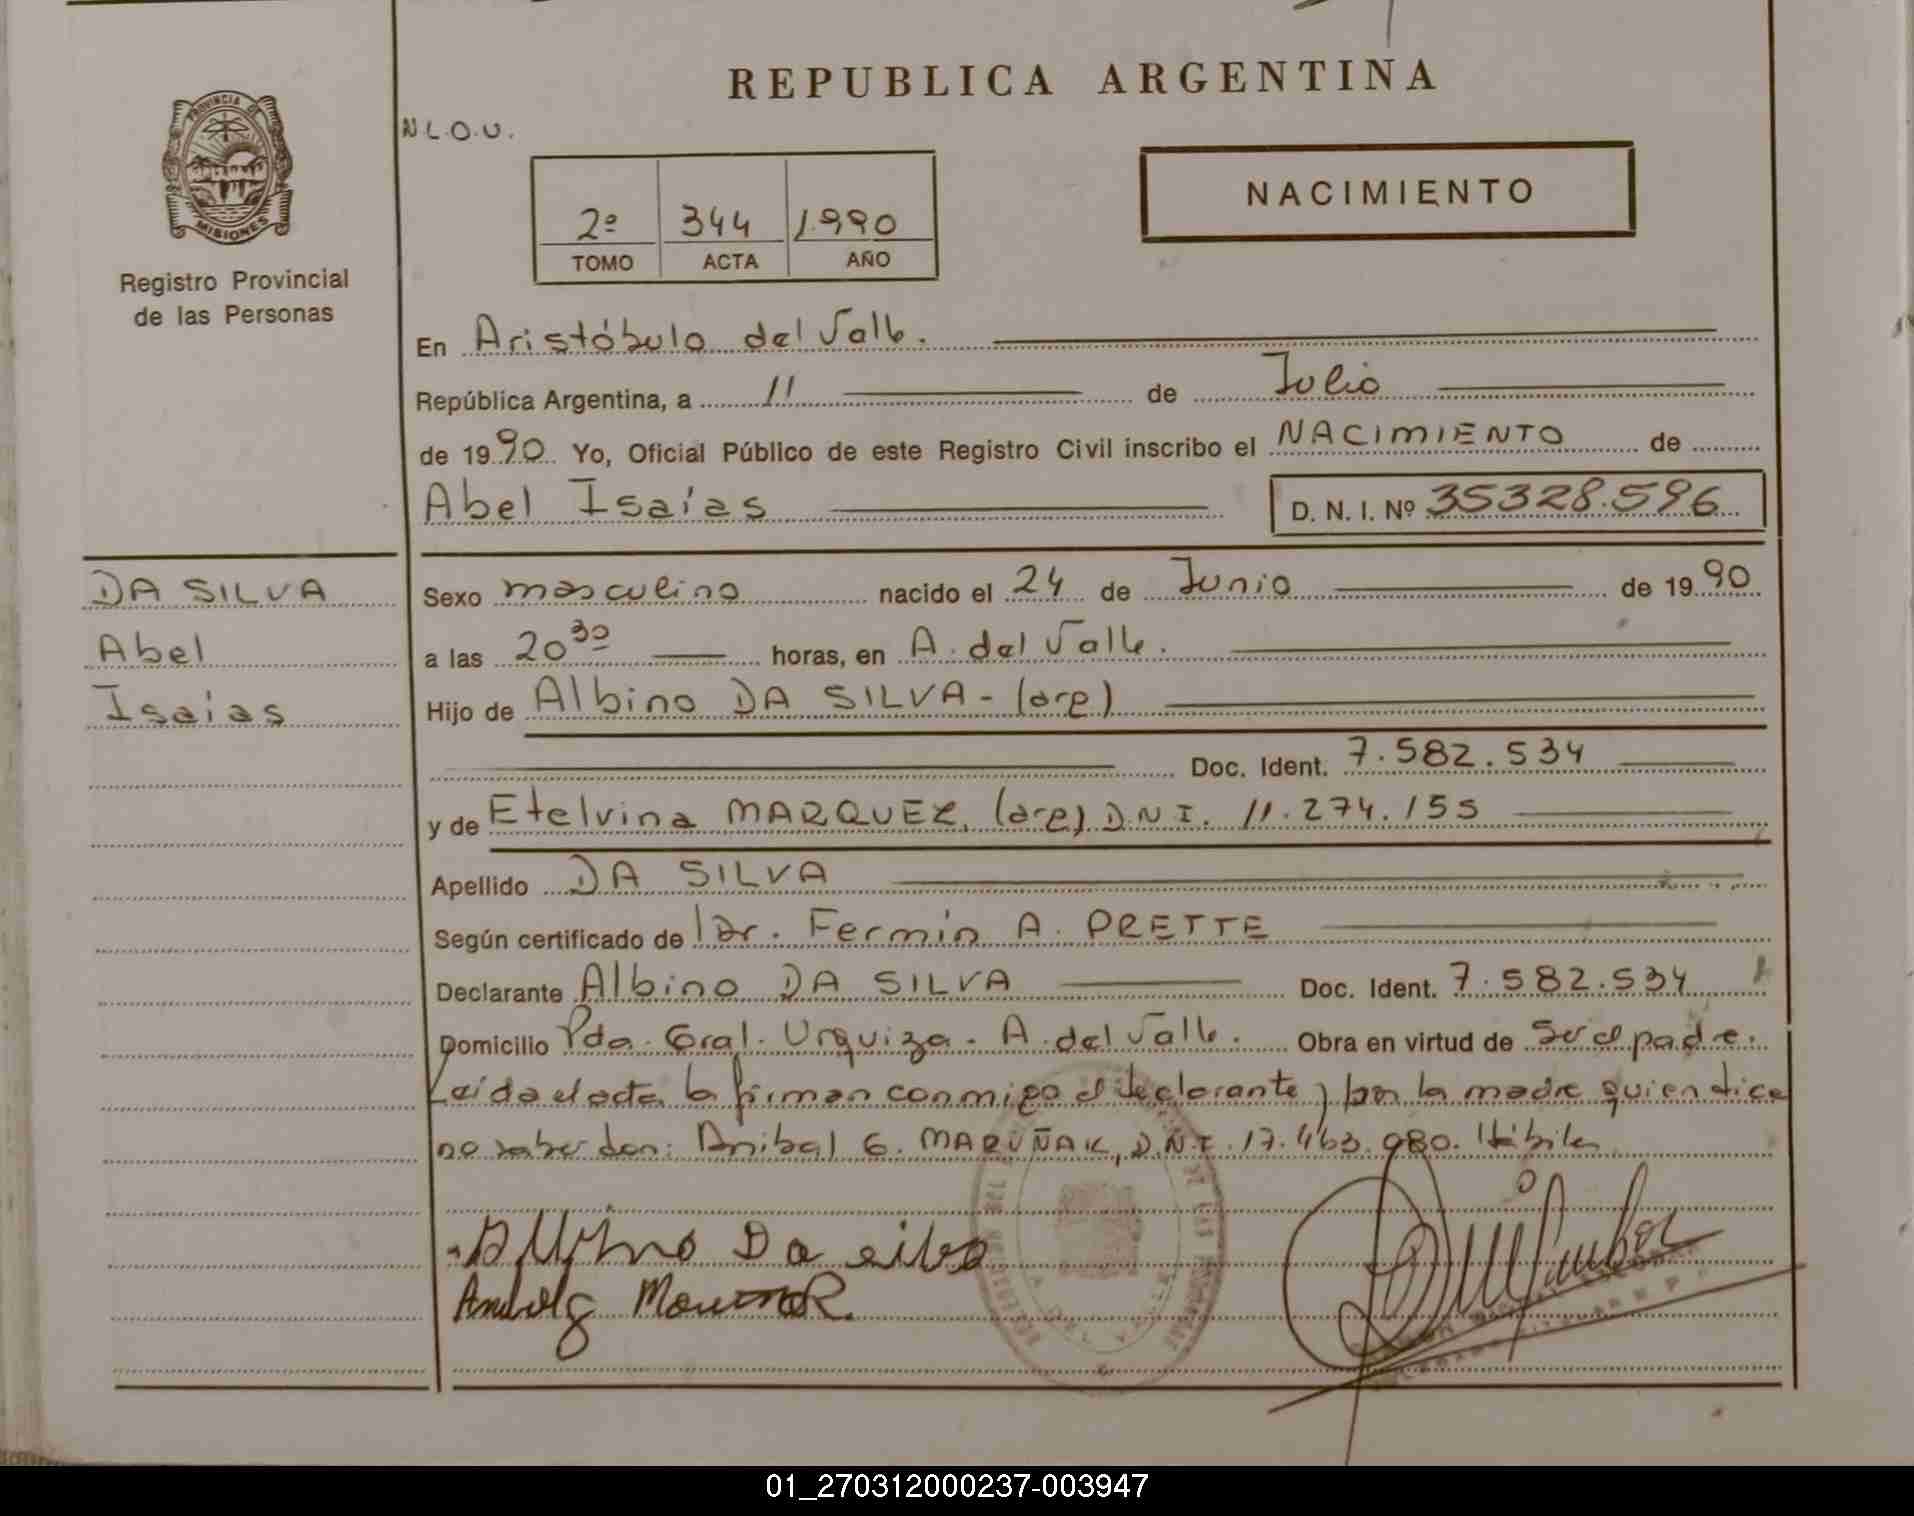 REPUBLICA ARGENTINA
PROVINCIA DE
MISIONES
Registro Provincial
de las Personas
N.L.O.U.
2º 344 1.990
TOMO ACTA AÑO
NACIMIENTO
En Aristóbulo del Valle.
República Argentina, a 11 de Julio
de 1990 Yo, Oficial Público de este Registro Civil inscribo el NACIMIENTO de
Abel Isaías D. N. I. Nº 35328.596
DA SILVA
Abel
Isaías
Sexo masculino nacido el 24 de Junio de 1990
a las 20³⁰ horas, en A. del Valle.
Hijo de Albino DA SILVA - (arg)
Doc. Ident. 7.582.534
y de Etelvina MARQUEZ, (arg) D.N.I. 11.274.155
Apellido DA SILVA
Según certificado de Dr. Fermín A. PRETTE
Declarante Albino DA SILVA Doc. Ident. 7.582.534
Domicilio Pda. Gral. Urquiza - A. del Valle. Obra en virtud de ser el padre.
Leída el acta la firman conmigo el declarante y por la madre quien dice
no saber don: Anibal G. MARUÑAK, D.N.I. 17.463.980. Hábiles
Albino Da silva
01_270312000237-003947